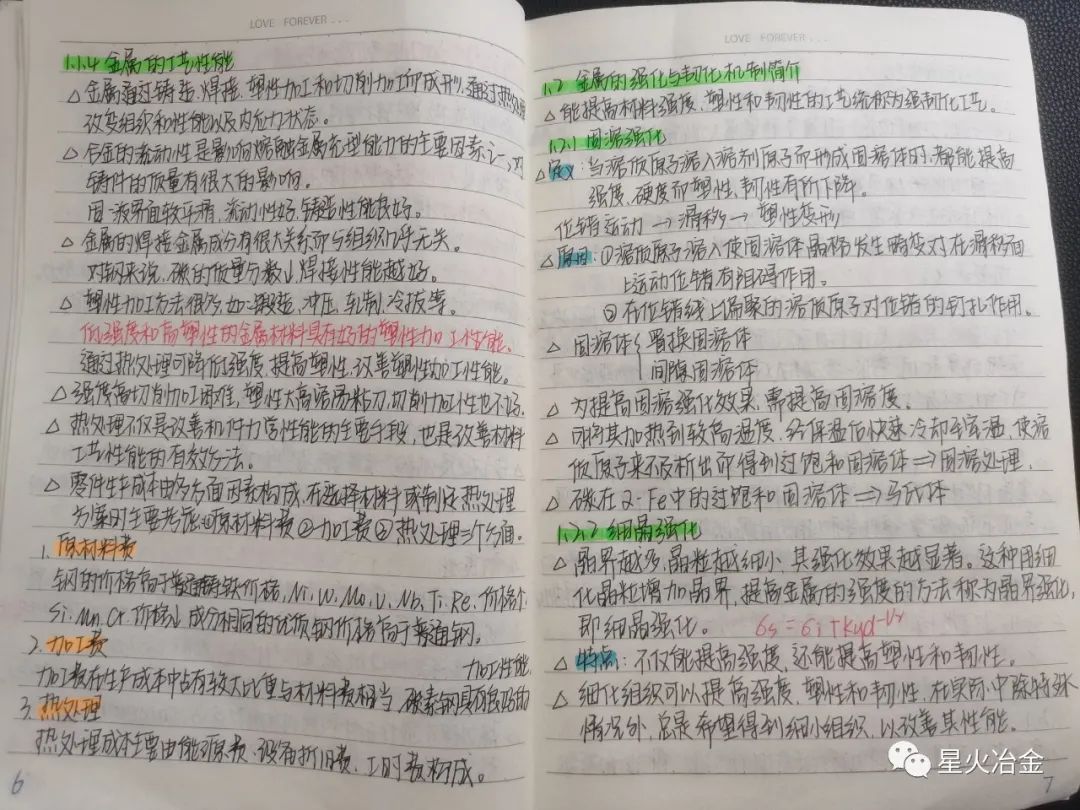 LOVE FOREVER...
1.1.4 金属的工艺性能
△ 金属通过铸造、焊接、塑性加工和切削加工而成形,通过热处理
改变组织和性能以及内应力状态。
△ 合金的流动性是影响熔融金属充型能力的主要因素之一,对
铸件的质量有很大的影响。
固-液界面较平滑,流动性好,铸造性能良好。
△ 金属的焊接金属成分有很大关系而与组织几乎无关。
对钢来说,碳的质量分数↓ 焊接性能越好。
△ 塑性加工方法很多,如:锻造、冲压、轧制、冷拔等。
低强度和高塑性的金属材料具有好的塑性加工性能。
通过热处理可降低强度,提高塑性,改善塑性加工性能。
△ 强度高切削加工困难,塑性大高温易粘刀,切削加工性也不好。
△ 热处理不仅是改善机件力学性能的主要手段,也是改善材料
工艺性能的有效方法。
△ 零件生产成本由多方面因素构成,在选择材料或制定热处理
方案时主要考虑①原材料费②加工费③热处理三个方面。
1. 原材料费
钢的价格高于普通铸铁价格,Ni、W、Mo、V、Nb、Ti、Re、价格↑
Si、Mn、Cr、价格↓ 成分相同的优质钢价格高于普通钢。
2. 加工费
加工性能
加工费在生产成本中占有较大比重与材料费相当,碳素钢具有良好的
3. 热处理
热处理成本主要由能源费、设备折旧费、工时费构成。
6
LOVE FOREVER...
1.2 金属的强化与韧化机制简介
△ 能提高材料强度、塑性和韧性的工艺统称为强韧化工艺。
1.2.1 固溶强化
△ 定义:当溶质原子溶入溶剂原子而形成固溶体时,都能提高
强度、硬度而塑性、韧性有所下降。
位错运动 → 滑移 → 塑性变形
△ 原因:①溶质原子溶入使固溶体晶格发生畸变对在滑移面
上运动位错有阻碍作用。
②在位错线上偏聚的溶质原子对位错的钉扎作用。
△ 固溶体{置换固溶体
间隙固溶体
△ 为提高固溶强化效果,需提高固溶度。
△ 可将其加热到较高温度,经保温后快速冷却至室温,使溶
质原子来不及析出而得到过饱和固溶体⇒固溶处理。
△ 碳在α-Fe中的过饱和固溶体⇒马氏体
1.2.2 细晶强化
△ 晶界越多,晶粒越细小,其强化效果越显著。这种用细
化晶粒增加晶界,提高金属的强度的方法称为晶界强化,
即细晶强化。 σs=σi+kyd-½
△ 特点:不仅能提高强度,还能提高塑性和韧性。
△ 细化组织可以提高强度、塑性和韧性,在实际中除特殊
情况外,总是希望得到细小组织,以改善其性能。
7
星火冶金